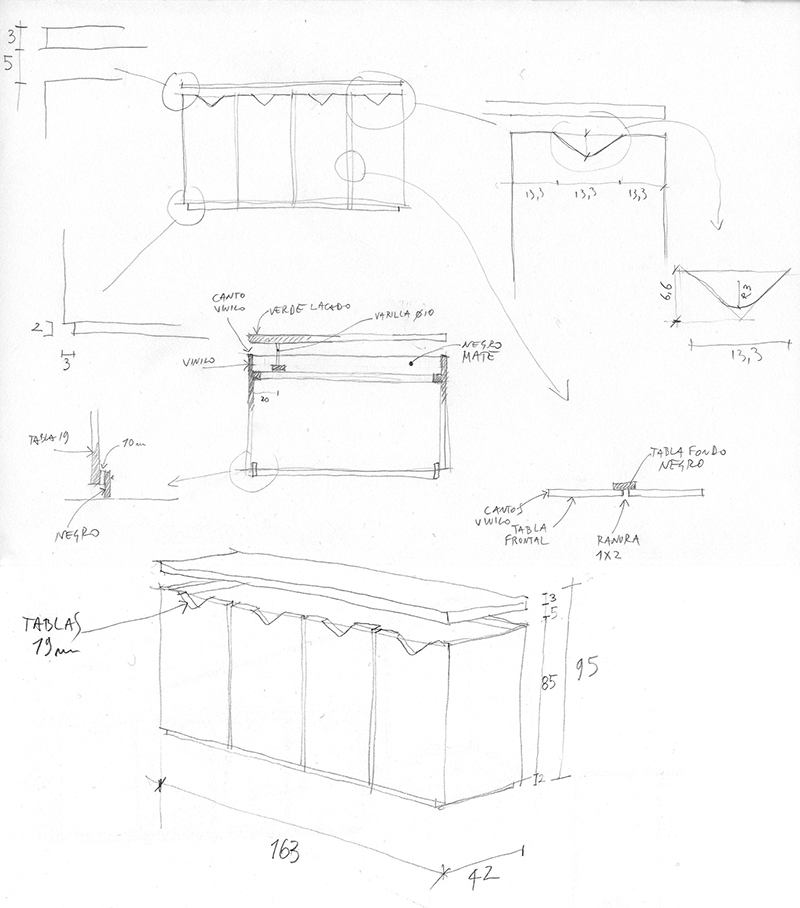 3
5
13,3
13,3
13,3
6,6
R3
13,3
2
3
CANTO
VINILO
VERDE LACADO
VARILLA Ø10
VINILO
NEGRO
MATE
20
TABLA 19
10m
NEGRO
TABLA FONDO
NEGRO
CANTOS
VINILO
TABLA
FRONTAL
RANURA
1X2
TABLAS
19m
3
5
85
2
95
163
42